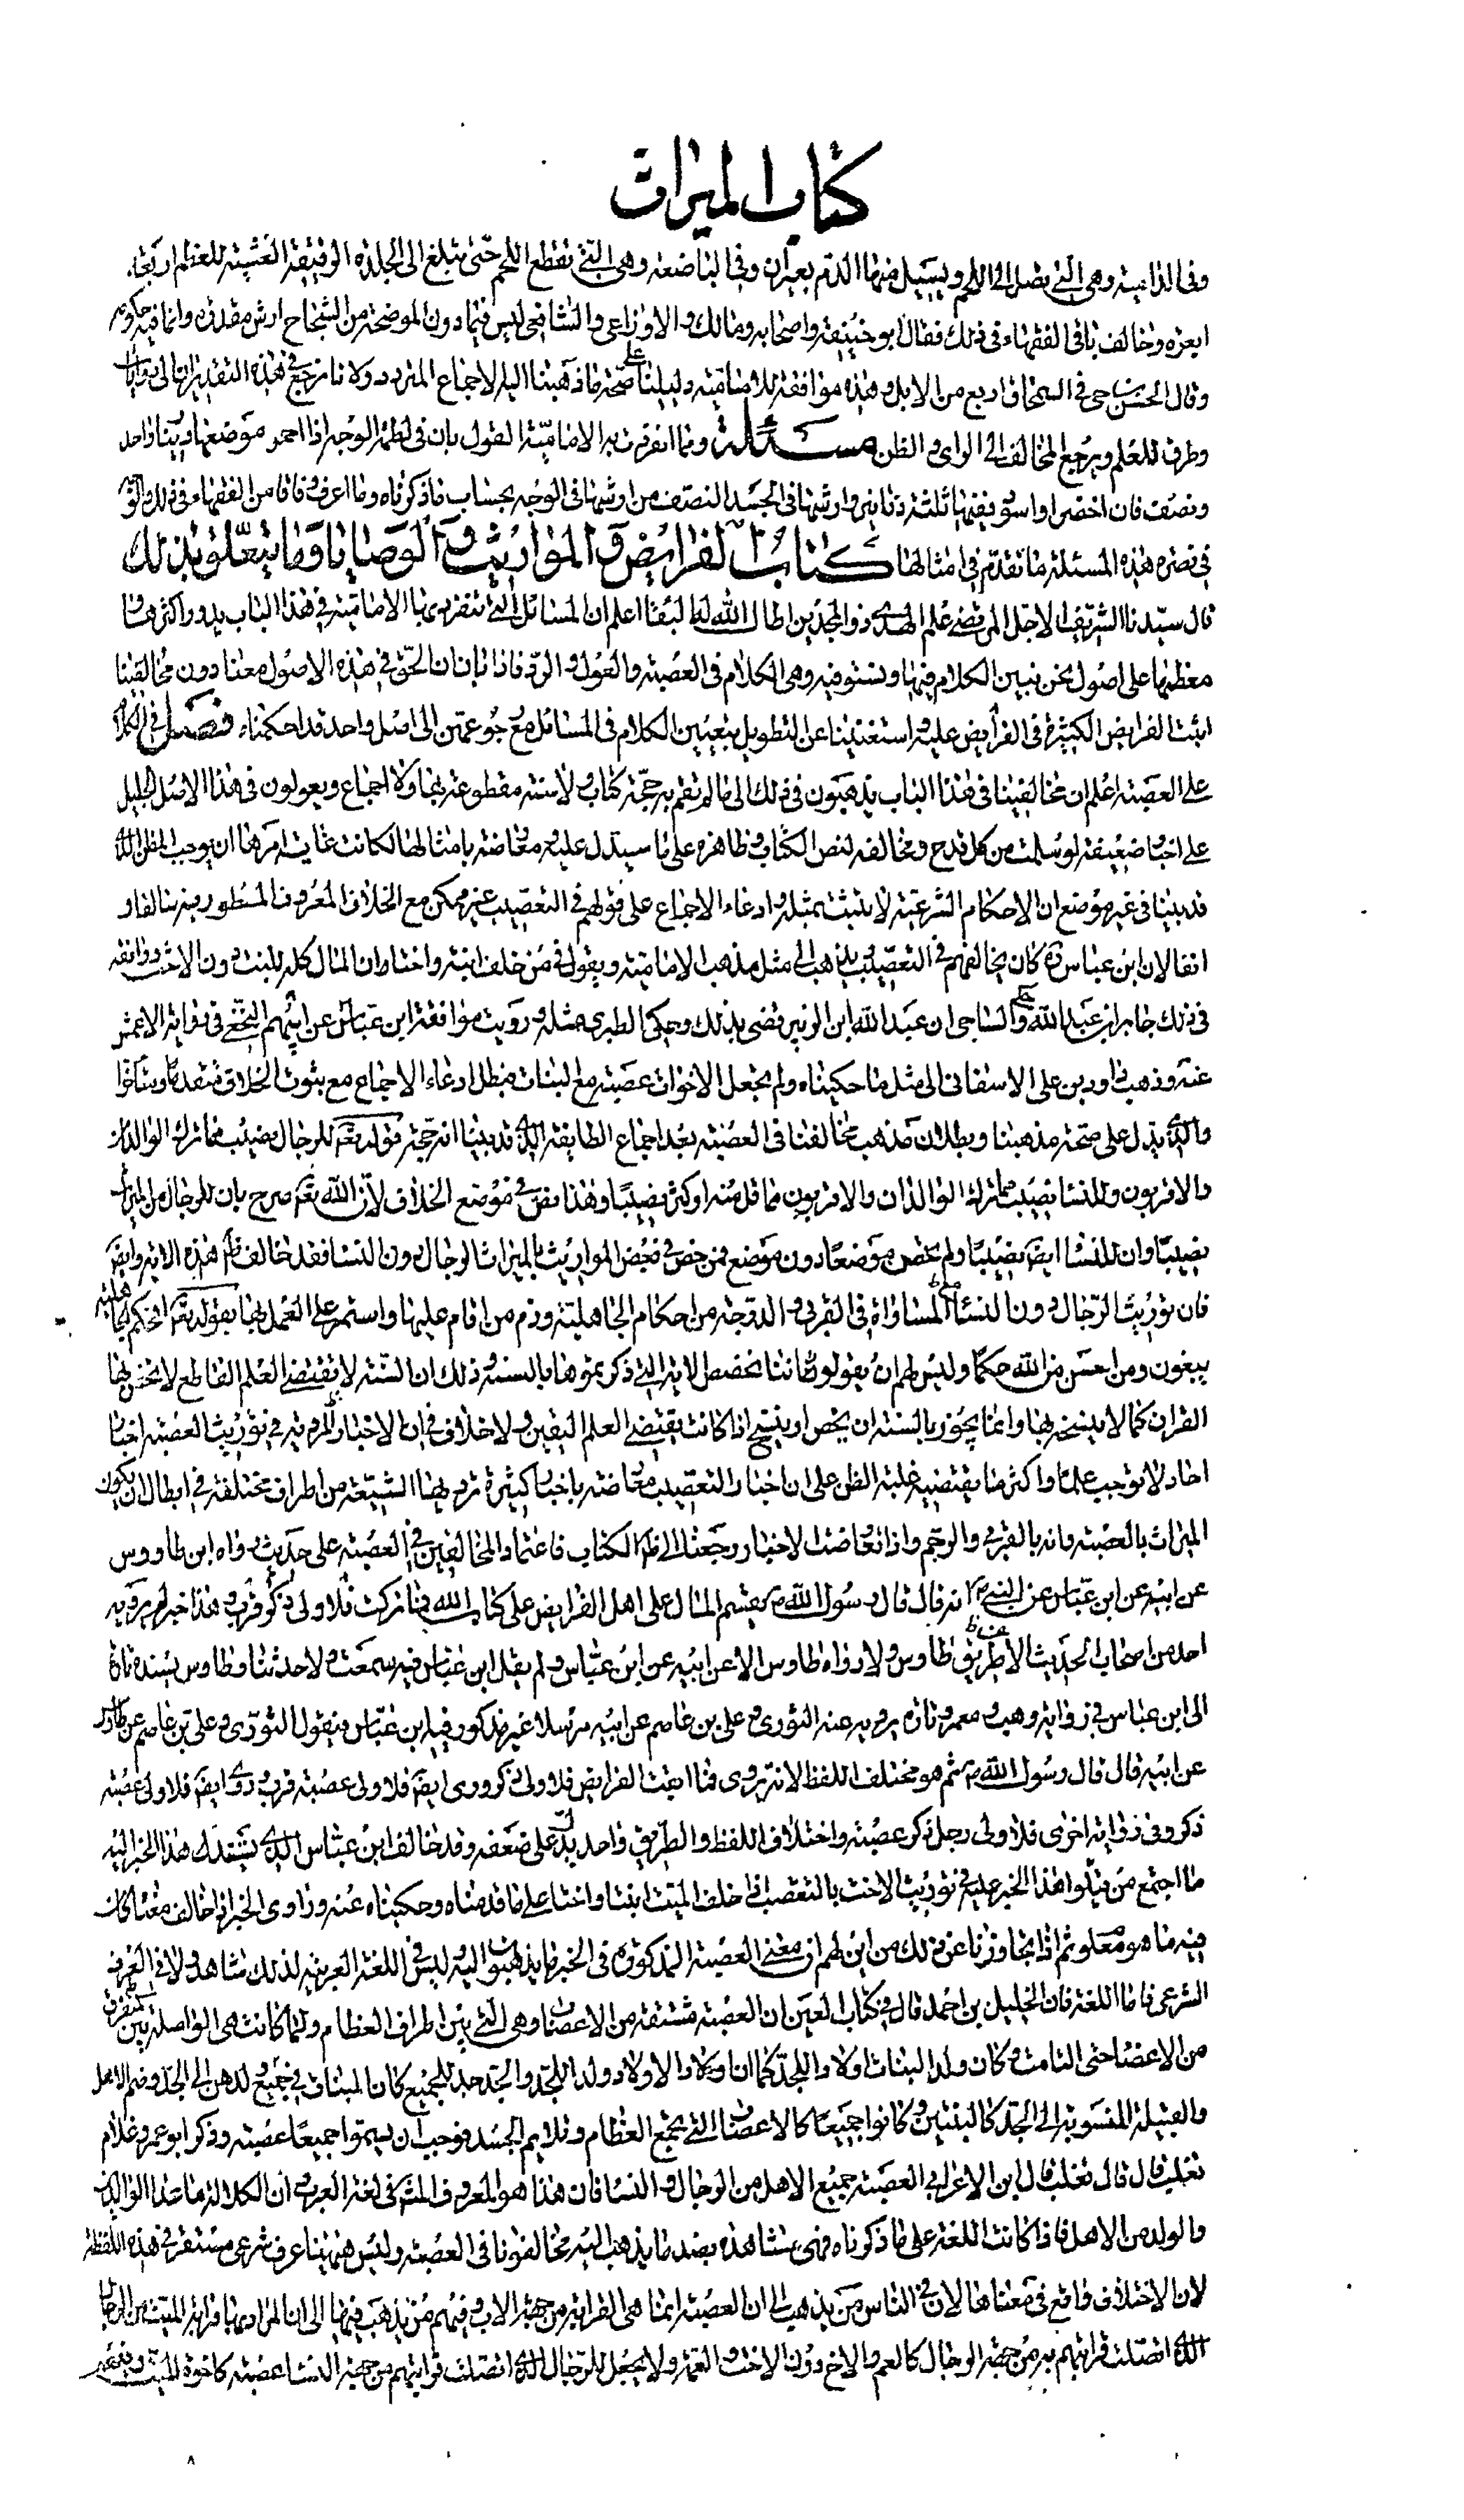 كتاب الميراث
وفى الدامية وهى التي يصل الى اللحم ويسيل منها الدم بعيران وفى الباضعة وهى التي تقطع اللحم حتى تبلغ الى الجلدة الرقيقة المغشية للعظم اربعة
ابعرة وخالف باقى الفقهاء فى ذلك فقال ابو حنيفة واصحابه ومالك والاوزاعى والشافعى ليس فيما دون الموضحة من الشجاج ارش مقدر وانما فيه حكومة
وقال الحسن بن حى فى السمحاق اربع من الابل وهذه موافقة للامامية دليلنا على صحة ما ذهبنا اليه الاجماع المتردد ولانا نرجع فى هذه التقديرات الى روايات
وطرق للعلم ويرجع المخالف الى الراى والظن مسئلة ومما انفردت به الامامية القول بان فى لطمة الوجه اذا احمر موضعها دينارا واحد
ونصف فان اخضر او اسود ففيها ثلثة دنانير وارشها فى الجسد النصف من ارشها فى الوجه بحساب ما ذكرناه وما اعرف وفاقا من الفقهاء فى ذلك والقول
فى نصرة هذه المسئلة ما تقدم فى امثالها كتاب الفرايض والمواريث والوصايا وما يتعلق بذلك
قال سيدنا الشريف الاجل المرتضى علم الهدى ذو المجدين اطال الله له البقا اعلم ان المسائل التى تنفرد بها الامامية فى هذا الباب يدور اكثرها و
معظمها على اصول نحن نبين الكلام فيها ونستوفيه وهى الكلام فى العصبة والعول والرد فاذا بان ان الحق فى هذه الاصول معنا دون مخالفينا
ابتنت الفرايض الكثيرة فى الفرايض عليه واستغنينا عن التطويل بتعيين الكلام فى المسائل مع رجوعهن الى اصل واحد قد احكمناه فصل فى الكلام
على العصبة اعلم ان مخالفينا فى هذا الباب يذهبون فى ذلك الى ما لم تقم به حجة كتاب ولا سنة مقطوعة بها ولا اجماع ويعولون فى هذا الاصل الجليل
على اخبار ضعيفة لو سلمت من كل قدح ومخالفة لنص الكتاب وظاهره على ما سيدل عليه ومعارضة بامثالها لكانت غاية امرها ان يوجب الظن الذى
قد بينا فى غير موضع ان الاحكام الشرعية لا يثبت بمثله وادعاء الاجماع على قولهم فى التعصيب غير ممكن مع الخلاف المعروف المسطور فيه سالفا و
انفا لان ابن عباس ره كان يخالفهم فى التعصيب ويذهب الى مثل مذهب الامامية ويقول فى من خلف ابنة واختا ان المال كله للبنت دون الاخت ووافقه
فى ذلك جابر بن عبد الله وحكى الساجى ان عبد الله ابن الزبير قضى بذلك وحكى الطبرى مثله ورويت موافقة ابن عباس عن ابرهيم النخعى فى رواية الاعمش
عنه وذهب داود بن على الاصفهانى الى مثل ما حكيناه ولم يجعل الاخوات عصبة مع البنات فبطل ادعاء الاجماع مع ثبوت الخلاف متقدما ومتاخرا
والذى يدل على صحة مذهبنا وبطلان مذهب مخالفنا فى العصبة بعد اجماع الطايفة الذى قد بينا انه حجة قوله تعم للرجال نصيب مما ترك الوالدان
والاقربون وللنسا نصيب مما ترك الوالدان والاقربون مما قل منه او كثر نصيبا وهذا نص فى موضع الخلاف لان الله تعم صرح بان للرجال من الميراث
نصيبا وان للنسا ايضا نصيبا ولم يخص موضعا دون موضع فمن خص فى بعض المواريث بالميراث الرجال دون النسا فقد خالف ظ هذه الاية وايضا
فان توريث الرجال دون النسا مع المساواة فى القربى والدرجة من احكام الجاهلية وذم من اقام عليها واستمر على العمل بها بقوله تعم افحكم الجاهلية
يبغون ومن احسن من الله حكما وليس لهم ان يقولوا اننا نخصص الاية التى ذكرتموها بالسنة وذلك ان السنة لا تقتضى العلم القاطع لا يخص بها
القران كما لا ينسخ بها وانما يجوز بالسنة ان يخص او ينسخ اذا كانت يقتضى العلم اليقين ولا خلاف فى ان الاخبار المروية فى توريث العصبة اخبار
احاد لا توجب علما واكثر ما يقتضيه غلبة الظن على ان اخبار التعصيب معارضة باخبار كثيرة ترويها الشيعة من اطراف مختلفة فى ابطال ان يكون
الميراث بالعصبة وانه بالقربى والرحم واذا تعارضت الاخبار رجعنا الى ظ الكتاب فاعتماد المخالفين فى العصبة على حديث رواه ابن طاووس
عن ابيه عن ابن عباس عن النبى ص انه قال قال رسول الله ص يقسم المال على اهل الفرايض على كتاب الله فما تركت فلاولى ذكر قرب وهذا خبر لم يروه
احد من اصحاب الحديث الا من طريق طاوس ولا رواه طاوس الا عن ابيه عن ابن عباس ولم يقل ابن عباس فيه سمعت ولا حدثنا وطاوس يسنده تارة
الى ابن عباس فى رواية وهب ومعمر وتارة يرويه عنه الثورى وعلى بن عاصم عن ابيه مرسلا غير مذكور فيه ابن عباس فيقول الثورى وعلى بن عاصم عن طاوس
عن ابيه قال قال رسول الله ص ثم هو مختلف اللفظ لانه يروى فما ابقت الفرايض فلاولى ذكر وروى ايضا فلاولى عصبة قرب وروى ايضا فلاولى عصبة
ذكر وفى رواية اخرى فلاولى رجل ذكر عصبة واختلاف اللفظ والطريق واحد يدل على ضعفه وقد خالف ابن عباس الذى يسند هذا الخبر اليه
ما اجتمع من قبلوا هذا الخبر عليه فى توريث الاخت بالتعصيب اذا خلف الميت ابنتا واختا على ما قدمناه وحكيناه عنه وراوى الخبر اذا خالف معناه كان
فيه ما هو معلوم ثم اذا تجاوزنا عن ذلك من اين لهم ان معنى العصبة المذكورة فى الخبر ما يذهبون اليه وليس فى اللغة العربية لذلك شاهد ولا فى العرف
الشرعى فاما اللغة فان الخليل بن احمد قال فى كتاب العين ان العصبة مشتقة من الاعصاب وهى التى بين اطراف العظام ولما كانت هى الواصلة بين المتفرق
من الاعضا حتى التامت وكان ولد البنات اولادا للجد كما ان اولاد الاولاد ولد للجد والجد جد للجميع كان البنات فى جميع ولدهن الى الجد وضم الاهل
والقبيلة المنسوبة الى الجد كالبنين وكانوا جميعا كالاعصاب التى تجمع العظام وتلايم الجسد فوجب ان يسموا جميعا عصبة وذكر ابو عمرو غلام
ثعلب قال قال ثعلب قال ابن الاعرابى العصبة جميع الاهل من الرجال والنسا فان هذا هو المعروف المشهور فى لغة العرب وان الكلالة ما عدا الوالدين
والولد من الاهل فاذا كانت اللغة على ما ذكرناه فهى شاهدة بضد ما يذهب اليه مخالفونا فى العصبة وليس هيهنا عرف شرعى مستقر فى هذه اللفظة
لان الاختلاف واقع فى معناها لان فى الناس من يذهب الى ان العصبة انما هى القرابة من جهة الاب وفيهم من يذهب فيها الى ان المراد بها قرابة الميت من الرجال
الذى اتصلت قرابتهم به من جهة الرجال كالعم والاخ دون الاخت والعمة ولا يجعل للرجال الذى اتصلت قرابتهم من جهة النسا عصبة كاخوة الميت